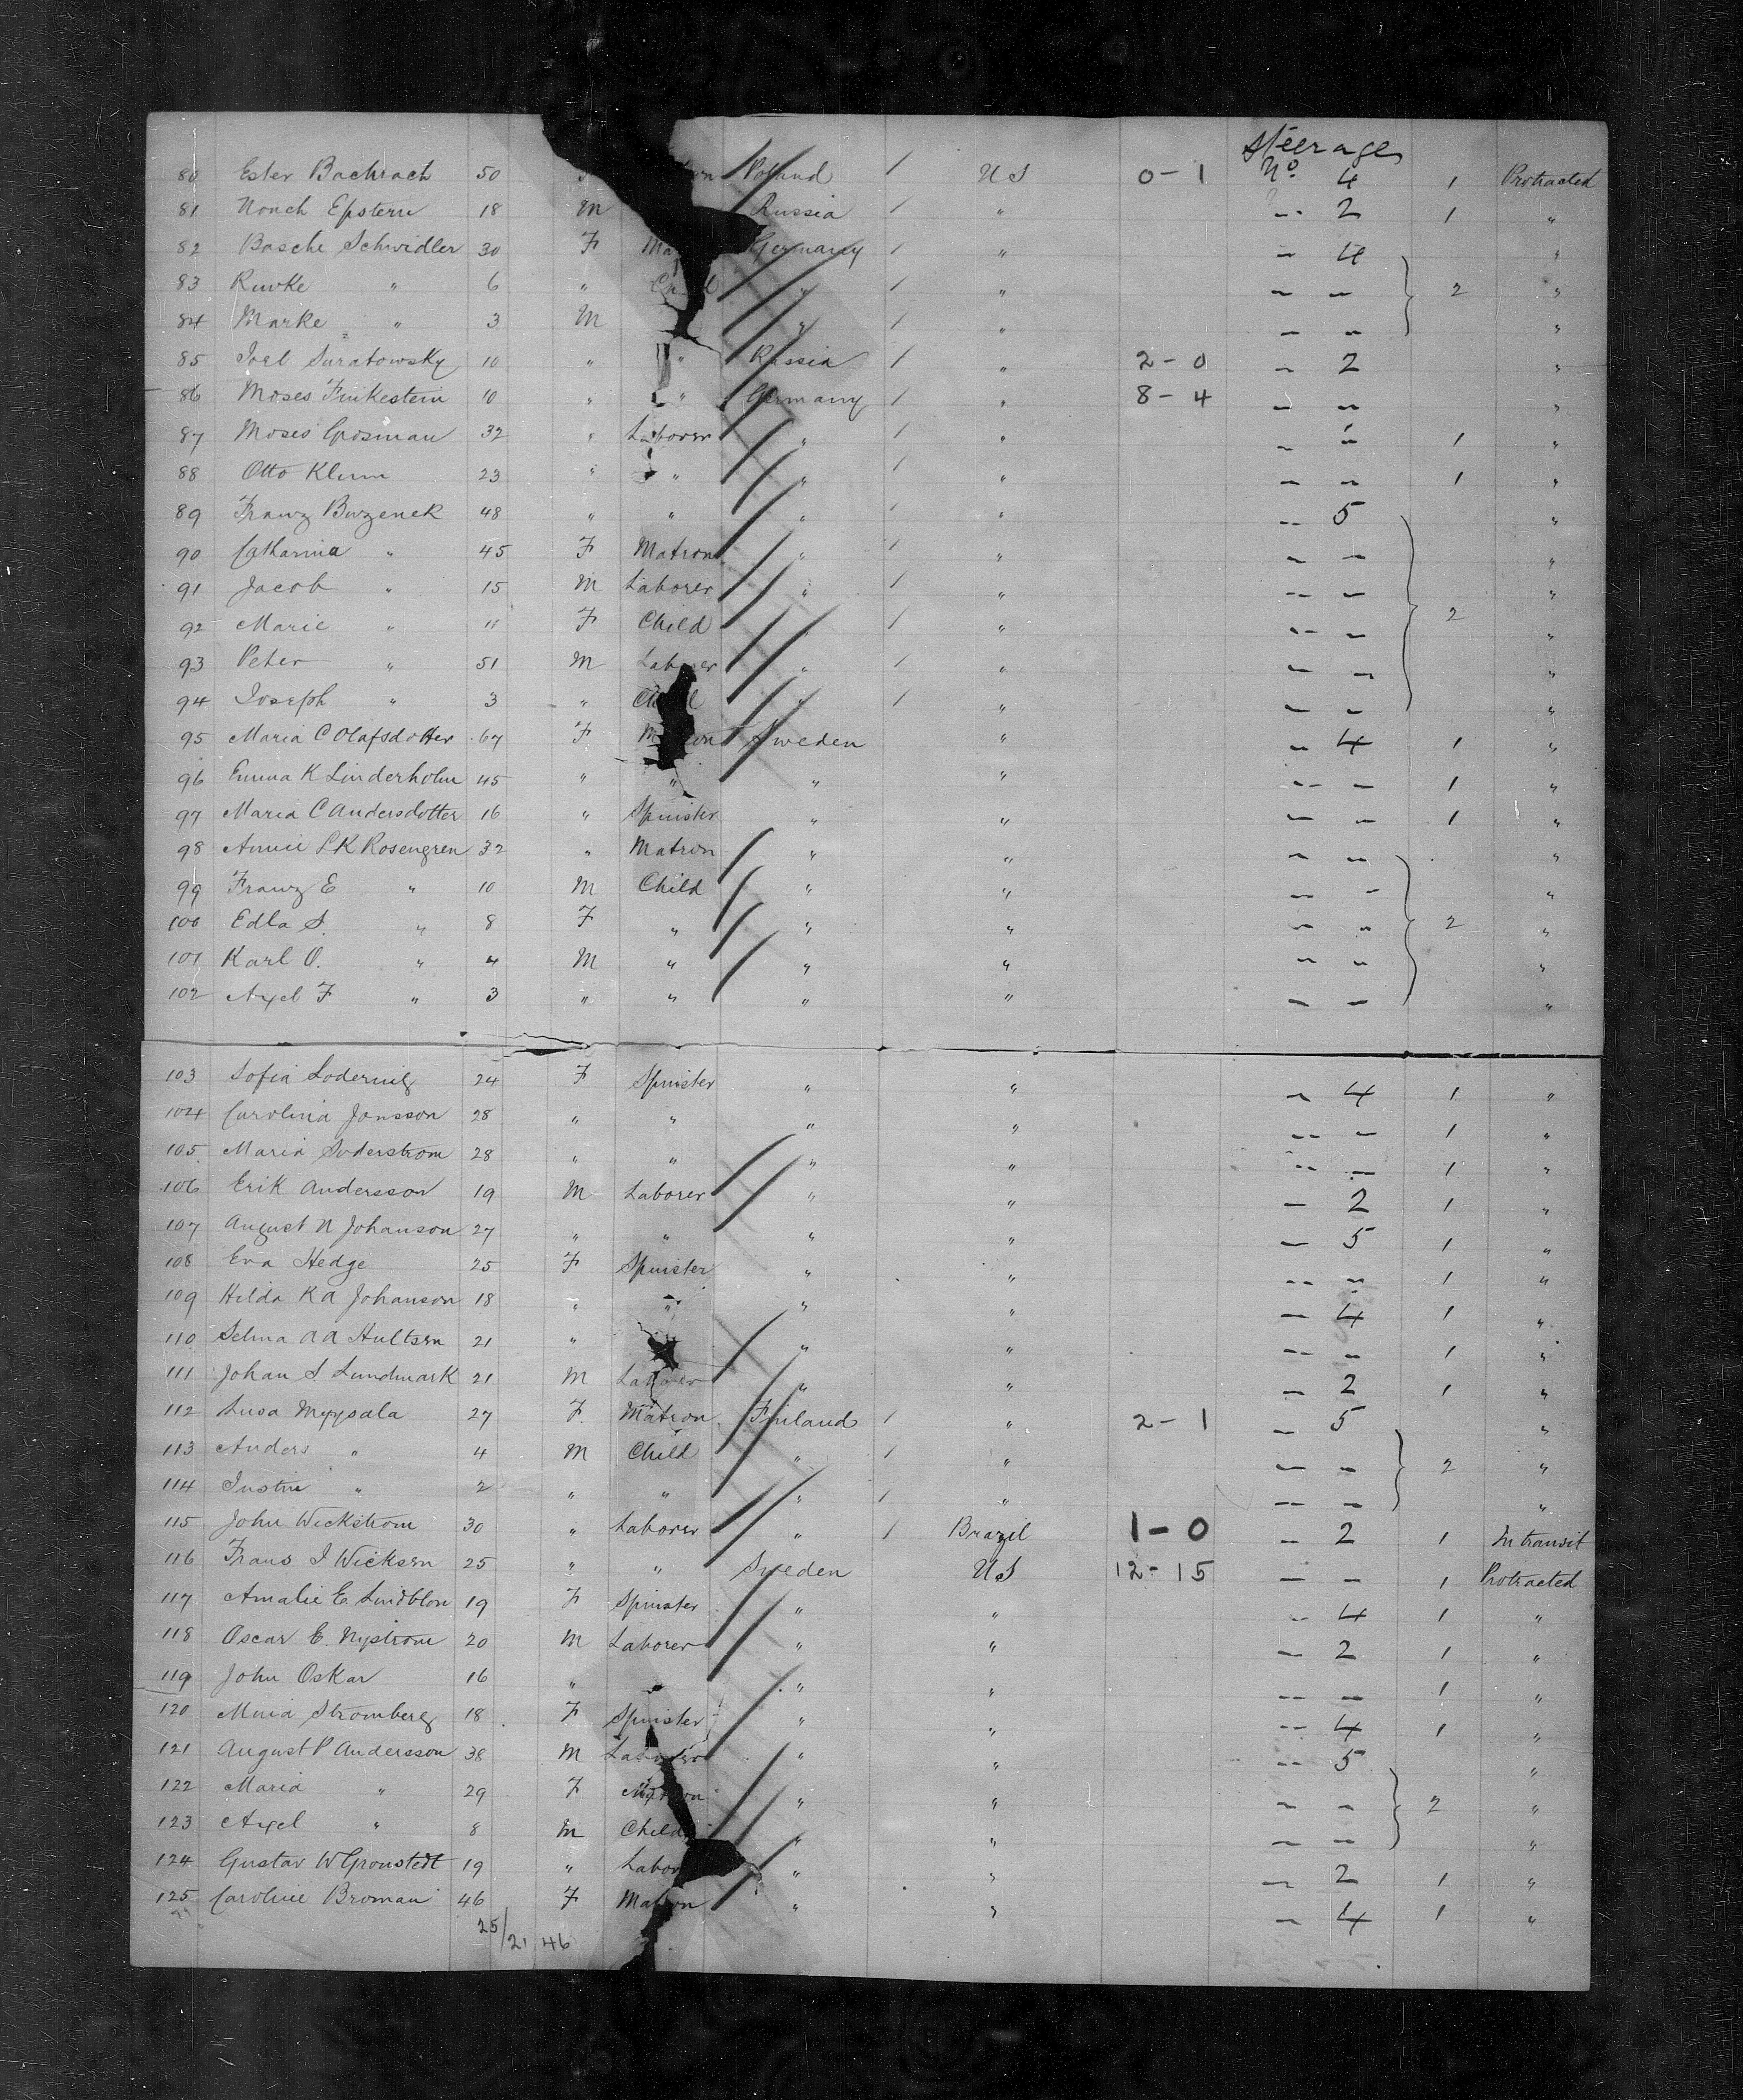 Steerage
80 Ester Bachrach 50 Poland / U S 0-1 No. 4 1 Protracted
81 Nonch Epstern 18 M Russia / " - 2 1 "
82 Basche Schwidler 30 F Germany / " - 4 "
83 Riwke " 6 " Child " / " - - 2 "
84 Marke " 3 M " / " - - "
85 Joel Suratowsky 10 " " Russia / " 2-0 - 2 "
86 Moses Finkestein 10 " " Germany / " 8-4 - - "
87 Moses Grosman 32 " Laborer " / " - " 1 "
88 Otto Klum 23 " " " / " - - 1 "
89 Franz Bwzenek 48 " " " / " - 5 "
90 Catharina " 45 F Matron " / " - - "
91 Jacob " 15 M Laborer " / " - - "
92 Marie " 11 F Child " / " - - 2 "
93 Peter " 51 M Laborer " / " - - "
94 Joseph " 3 " Child " / " - - "
95 Maria C Olafsdotter 67 F Matron Sweden " - 4 1 "
96 Emma K Linderholm 45 " " " " - - 1 "
97 Maria C Andersdotter 16 " Spinster " " - - 1 "
98 Annie L K Rosengren 32 " Matron " " - - "
99 Franz E " 10 M Child " " - - "
100 Edla S. " 8 F " " " - - 2 "
101 Karl O. " 4 M " " " - - "
102 Axel F " 3 " " " " - - "
103 Sofia Lodernig 24 F Spinster " " - 4 1 "
104 Carolina Jonsson 28 " " " " - - 1 "
105 Maria Soderstrom 28 " " " " - - 1 "
106 Erik Andersson 19 M Laborer " " - 2 1 "
107 August N Johanson 27 " " " " - 5 1 "
108 Eva Hedge 25 F Spinster " " - - 1 "
109 Hilda K A Johanson 18 " " " " - 4 1 "
110 Selma A A Hultsen 21 " " " - - 1 "
111 Johan S. Lundmark 21 M Laborer " " - 2 1 "
112 Lusa Myysala 27 F. Matron Finland / " 2-1 - 5 "
113 Anders " 4 M Child " / " - - 2 "
114 Justni " 2 " " " / " - - "
115 John Wickstrom 30 " Laborer " / Brazil 1-0 - 2 1 In transit
116 Frans I Wicksen 25 " " Sweden U S 12-15 - - 1 Protracted
117 Amalie E. Lindblon 19 F Spinster " " - 4 1 "
118 Oscar E. Nystrom 20 M Laborer " " - 2 1 "
119 John Oskar 16 " " " - - 1 "
120 Maria Stromberg 18 F Spinster " " - 4 1 "
121 August P Andersson 38 M Laborer " " - 5 "
122 Maria " 29 F Matron " " - - 2 "
123 Axel " 8 M Child " " - - "
124 Gustav W Gronstedt 19 " " " - 2 1 "
125 Caroline Broman 46 F Matron " " - 4 1 "
25/21 46